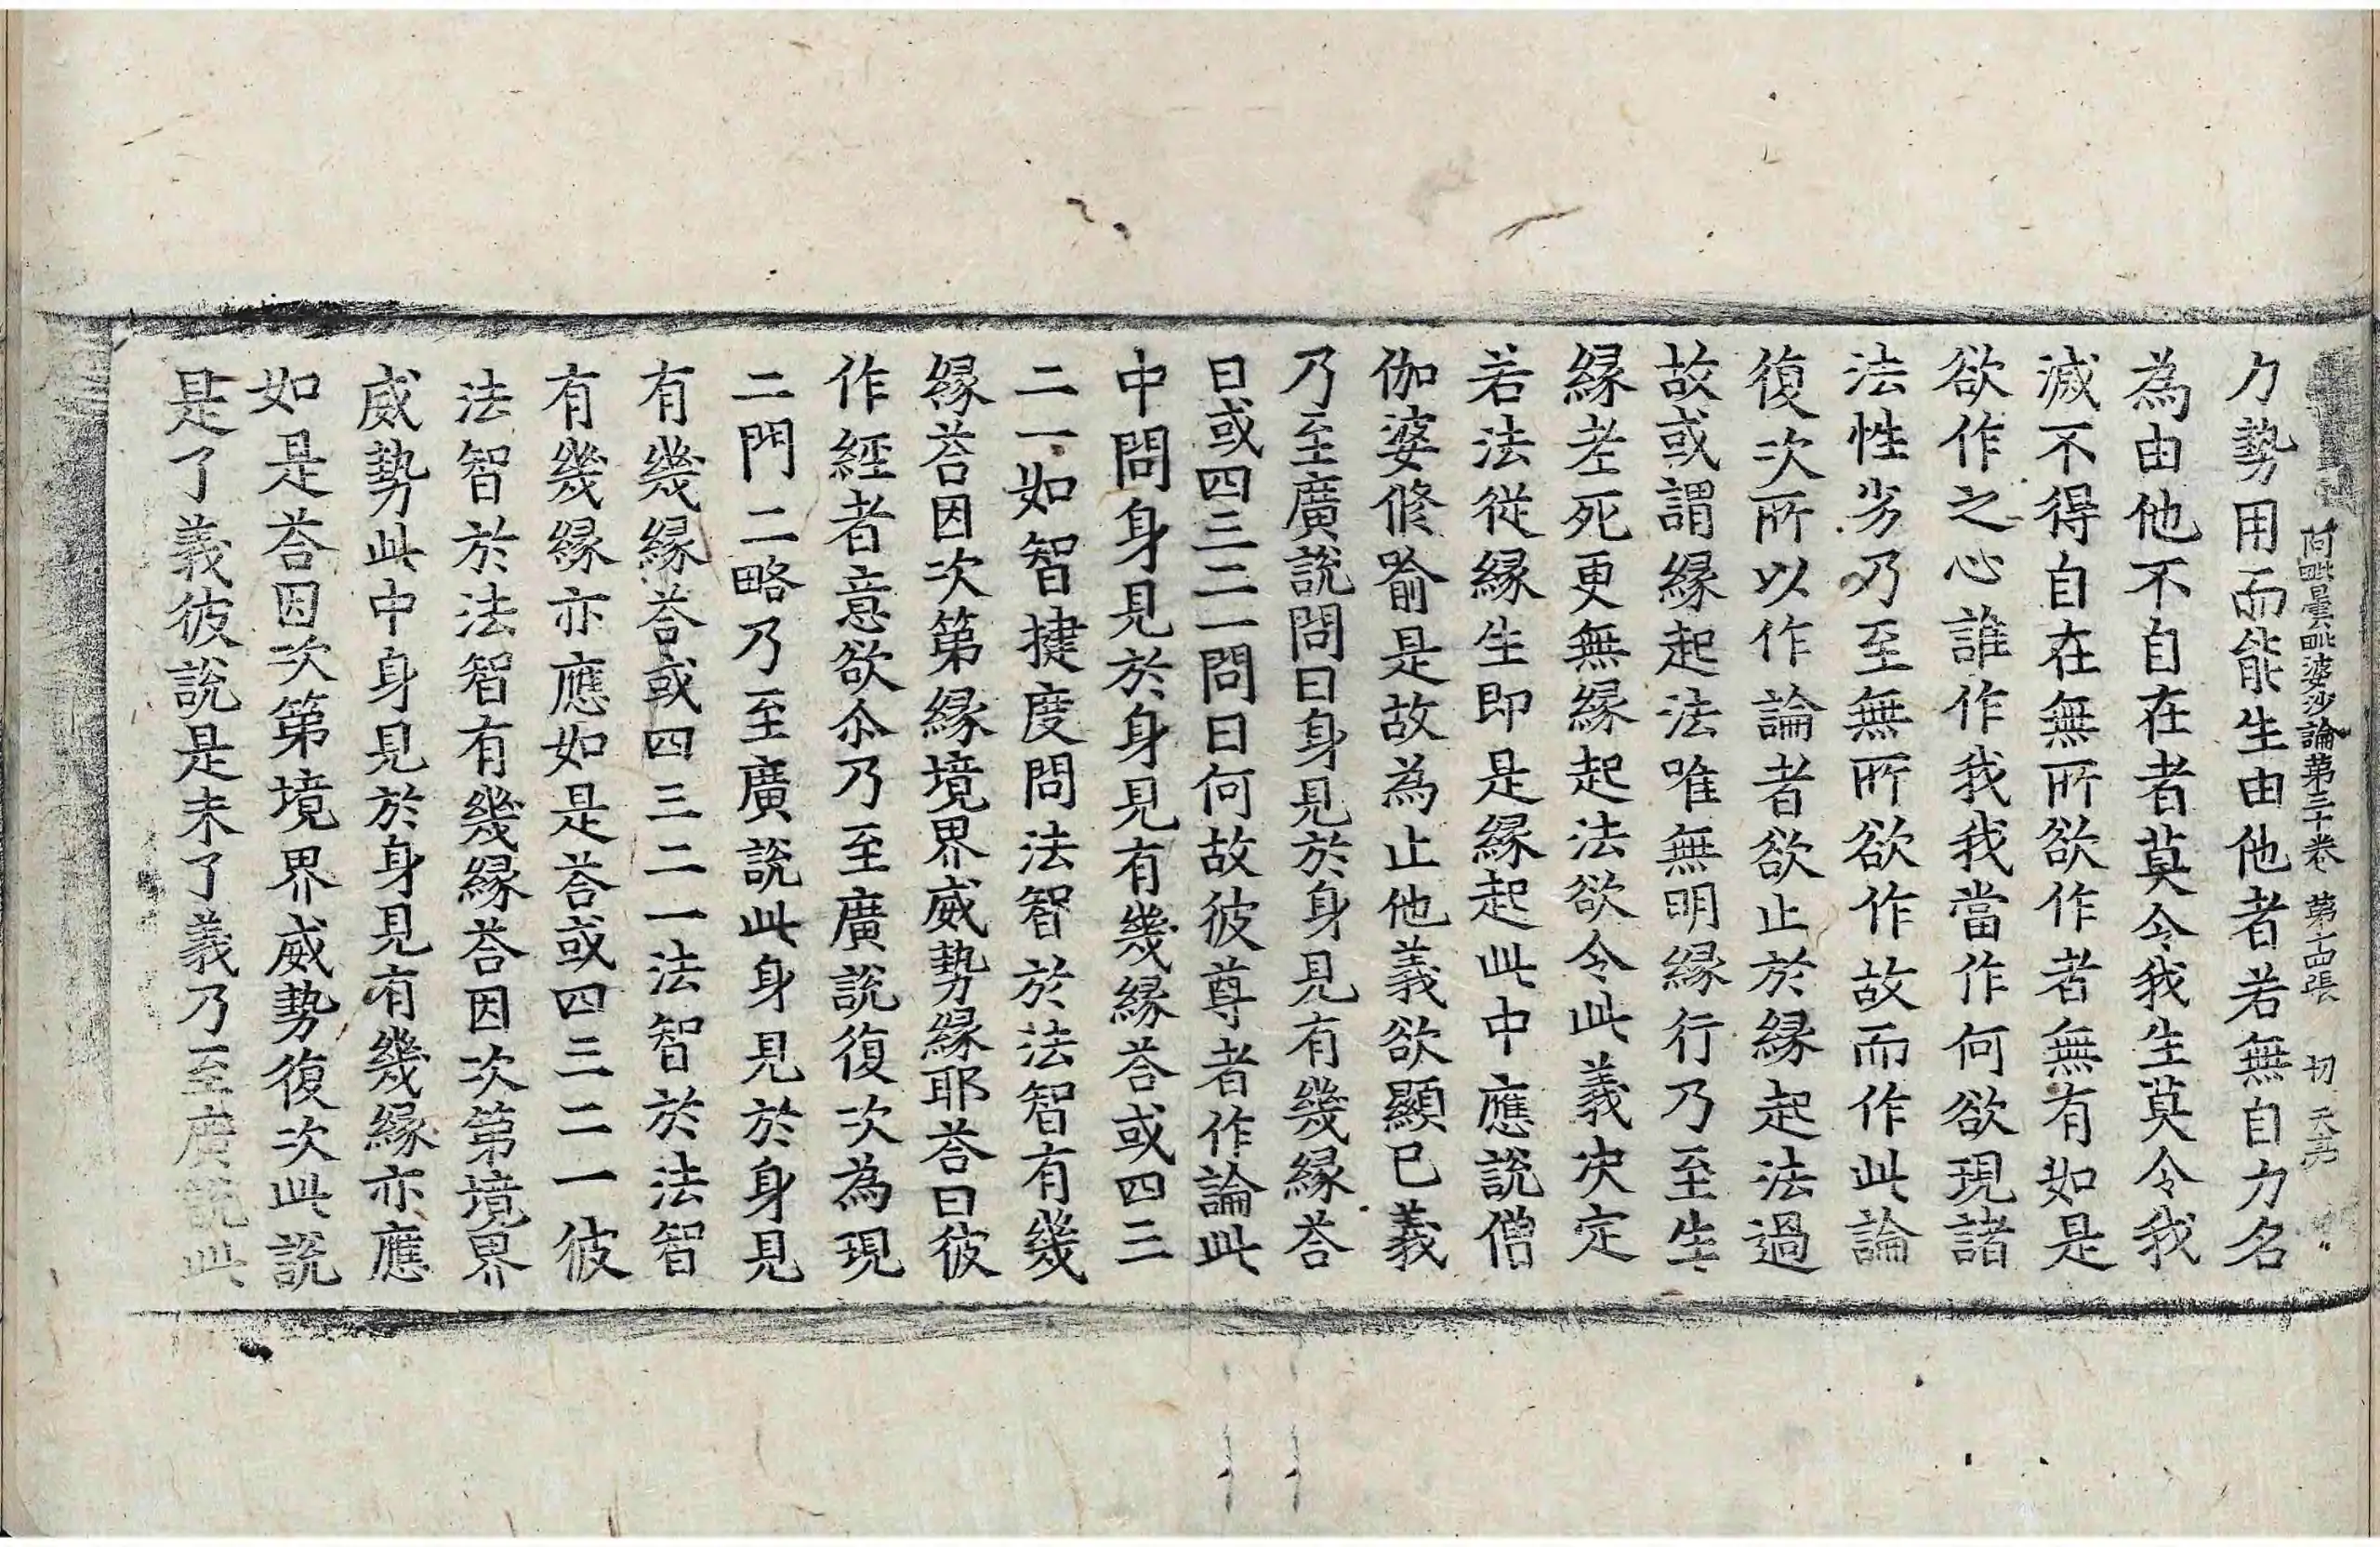 阿毗曇毗婆沙論第三十卷 第十四張 初 天亮
力勢用而能生由他者若無自力名
為由他不自在者莫令我生莫令我
滅不得自在無所欲作者無有如是
欲作之心誰作我我當作何欲現諸
法性劣乃至無所欲作故而作此論
復次所以作論者欲止於緣起法過
故或謂緣起法唯無明緣行乃至生
緣老死更無緣起法欲令此義決定
若法從緣生即是緣起此中應說僧
伽婆修喻是故為止他義欲顯已義
乃至廣說問曰身見於身見有幾緣荅
曰或四三二一問曰何故彼尊者作論此
中問身見於身見有幾緣荅或四三
二一如智揵度問法智於法智有幾
緣荅因次第緣境界威勢緣耶荅曰彼
作經者意欲尒乃至廣說復次為現
二門二略乃至廣說此身見於身見
有幾緣荅或四三二一法智於法智
有幾緣亦應如是荅或四三二一彼
法智於法智有幾緣荅因次第境界
威勢此中身見於身見有幾緣亦應
如是荅因次第境界威勢復次此說
是了義彼說是未了義乃至廣說此